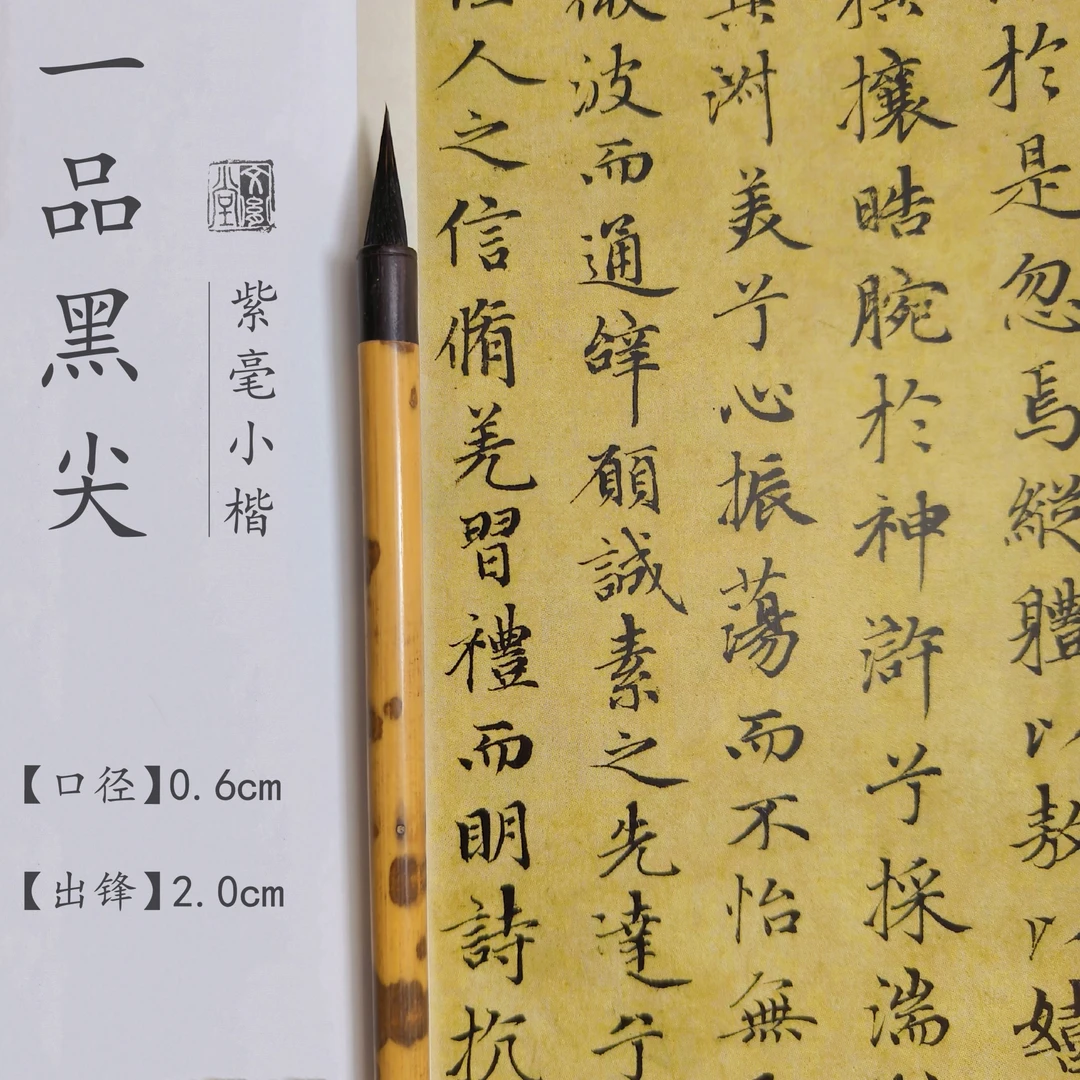 一品黑尖
紫毫小楷
【口径】0.6cm
【出锋】2.0cm
於是忽焉縱體以敖以嬉
攘皓腕於神滸兮採湍
淑美兮心振蕩而不怡無
波而通辭願誠素之先達兮
人之信脩羌習禮而明詩抗